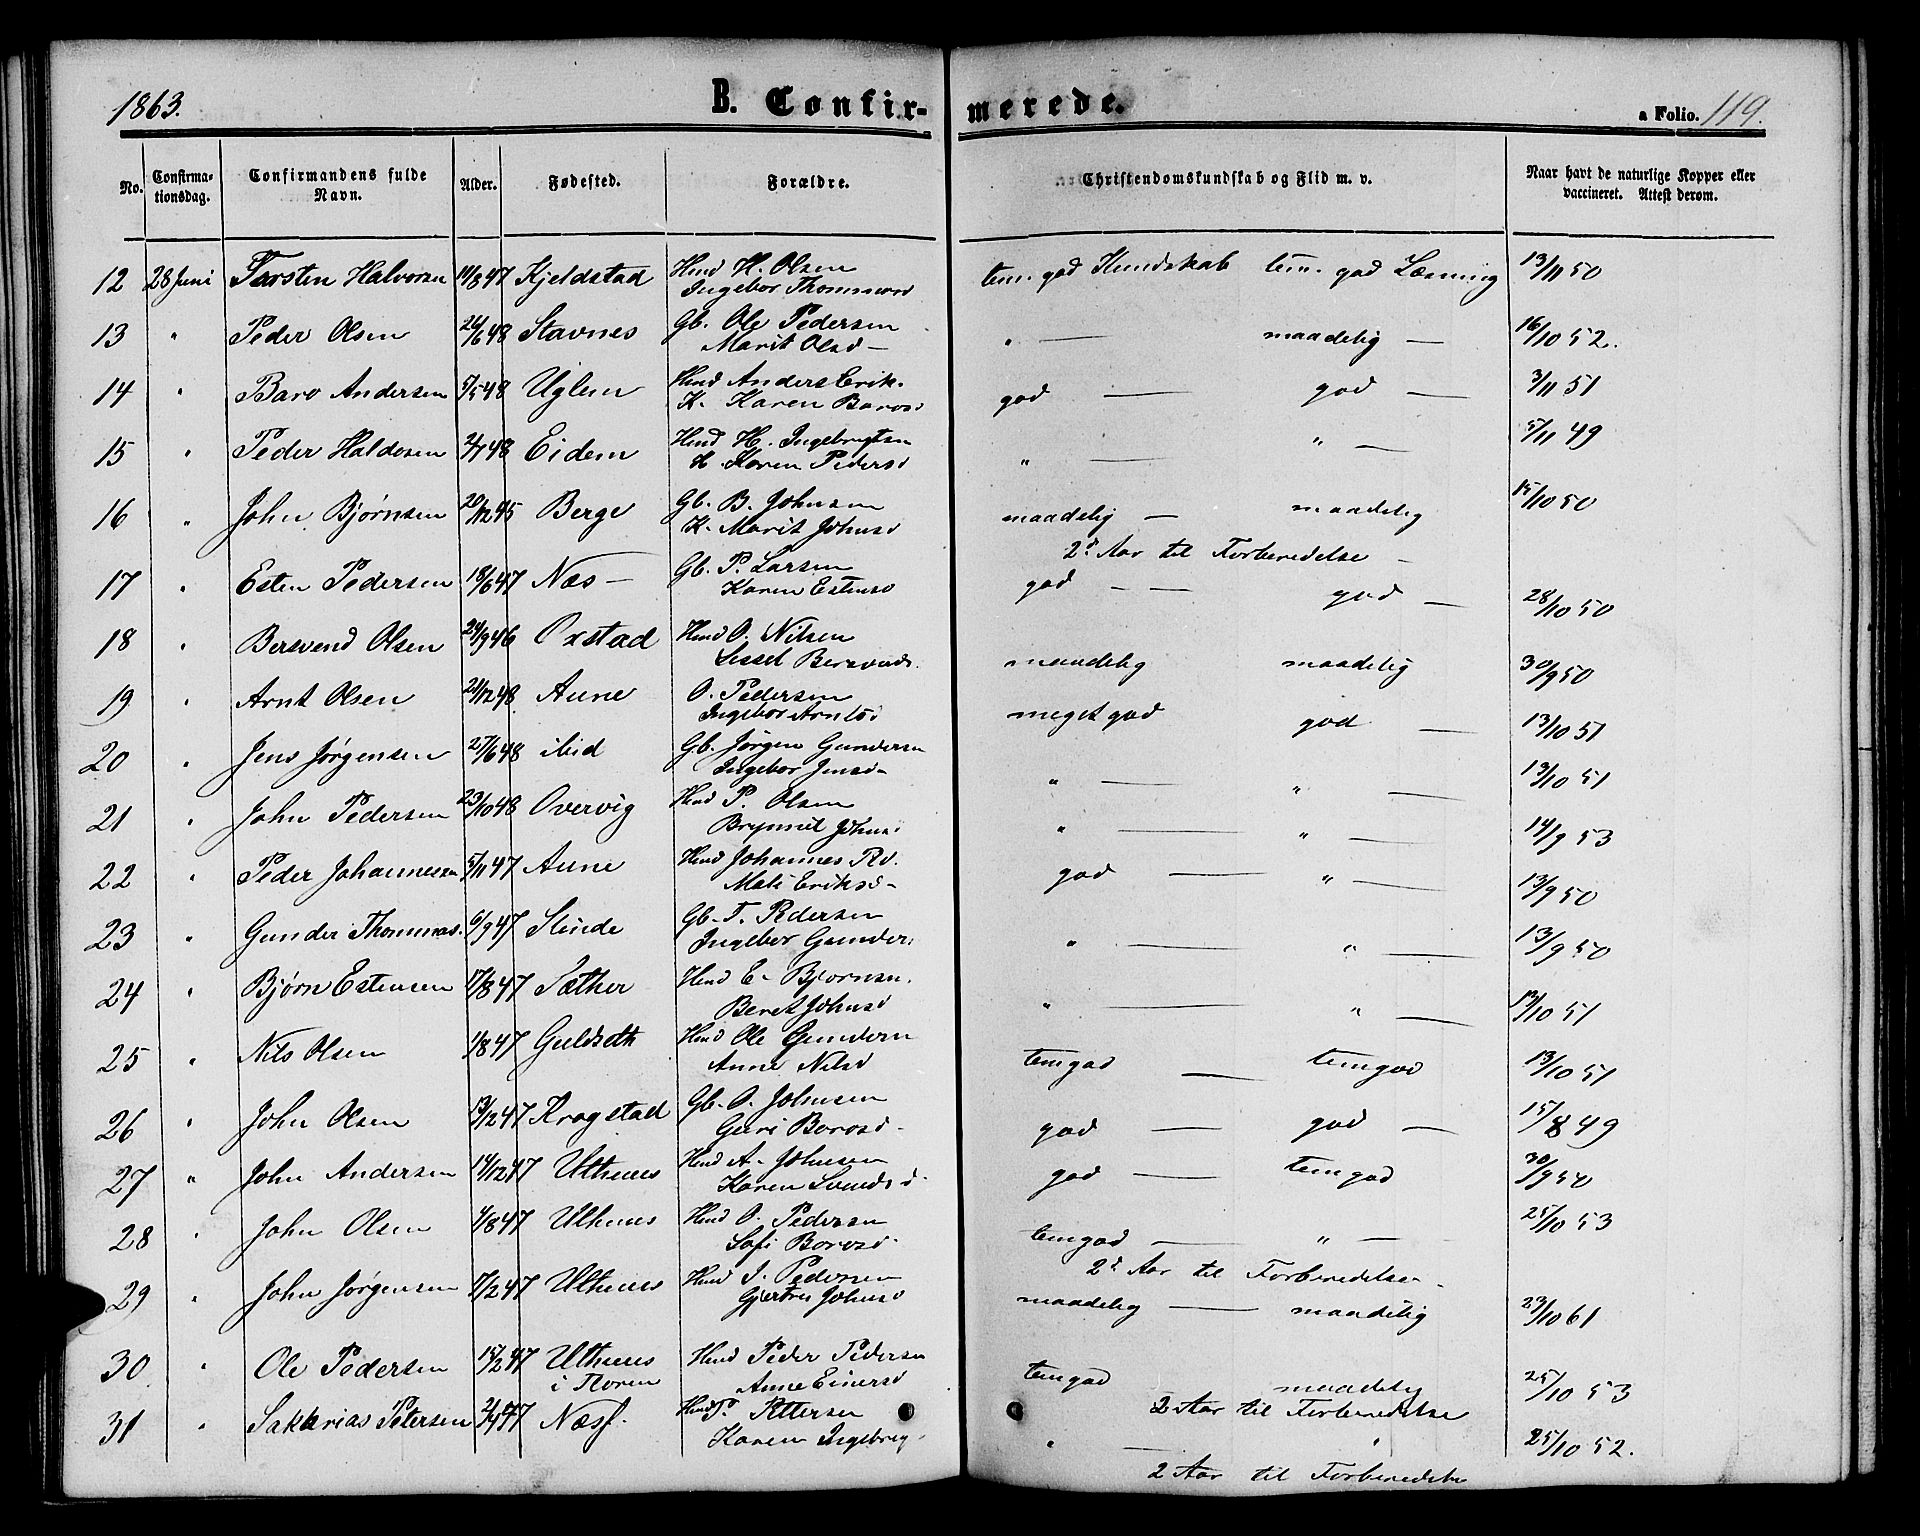 1863.
B. Confir-
merede.
a Folio. 119.
No.
Confirma-
tionsdag.
Confirmandens fulde
Navn.
Alder.
Fødested.
Forældre.
Christendomskundskab og Flid m. v.
Naar havt de naturlige Kopper eller
vaccineret. Attest derom.
12 28 Juni Torsten Halvorsen 14/8 47 Kjeldstad Hmd H. Olsen
Ingebor Thommesd tem. god Kundskab tem. god Læsning 13/11 50
13 " Peder Olsen 24/6 48 Stavnes Gb. Ole Pedersen
Marit Olsd — " — maadelig — 16/10 52.
14 " Baro Andersen 5/5 48 Uglem Hmd Anders Erik.
K. Karen Barosd god — god — 3/11 51
15 " Peder Haldosen 2/7 48 Eidem Hmd H. Ingebrigtsen
K. Karen Pedersd " — " — 5/11 49
16 " John Bjørnsen 20/12 45 Berge Gb. B. Johnsen
K. Marit Johnsd maadelig — maadelig 15/10 50
2d Aar til Forberedelse —
17 " Esten Pedersen 18/6 47 Næs — Gb. P. Larsen
Karen Estensd god — — god — 28/10 50
18 " Bersvend Olsen 24/9 46 Oxstad Hmd O. Nilsen
Sissel Bersvends. maadelig maadelig 30/9 50
19 " Arnt Olsen 21/12 48 Aune O. Pedersen
Ingebor Arntsd meget god god — 13/10 51
20 " Jens Jørgensen 27/6 48 ibid Gb. Jørgen Gundersen
Ingebor Jensd — " — " — 13/10 51
21 " John Pedersen 23/10 48 Overvig Hmd P. Olsen
Brynnil Johnsd " — " — 14/9 53
22 " Peder Johannesen 5/11 47 Aune Hmd Johannes Pd.
Mali Eriksd — god — " — 13/9 50
23 " Gunder Thommas. 6/9 47 Slinde Gb. T. Pedersen
Ingebor Gunders " — " — 13/9 50
24 " Bjørn Estensen 17/8 47 Sæther Hmd E. Bjørnsen.
Beret Johnsd " — " — 13/10 51
25 " Nils Olsen 1/8 47 Guldseth Hmd Ole Gundersen
Anne Nilsd temgod — temgod 13/10 51
26 " John Olsen 13/12 47 Kragstad Gb. O. Johnsen
Guri Barosd — god — god — 15/8 49
27 " John Andersen 14/12 47 Uthuus Hmd A. Johnsen
Karen Svends d. god — temgod 30/9 50
28 " John Olsen 4/8 47 Uthuus Hmd O. Pedersen
Sofi Barosd. temgod — " — 25/10 53
2d Aar til Forberedelse.
29 " John Jørgensen 17/2 47 Uthuus Hmd J. Pedersen
Gjertru Johnsd maadelig — maadelig 23/10 61
30 " Ole Pedersen 15/2 47 Uthuus
i Floren Hmd Peder Pedersen
Anne Einersd temgod maadelig 25/10 53
2 Aar til Forberedelse
31 " Sakkarias Petersen 2/4 47 Næsf. Hmd P. Pettersen
Karen Ingebrig. " — " 25/10 52.
2 Aar til Forberedelse